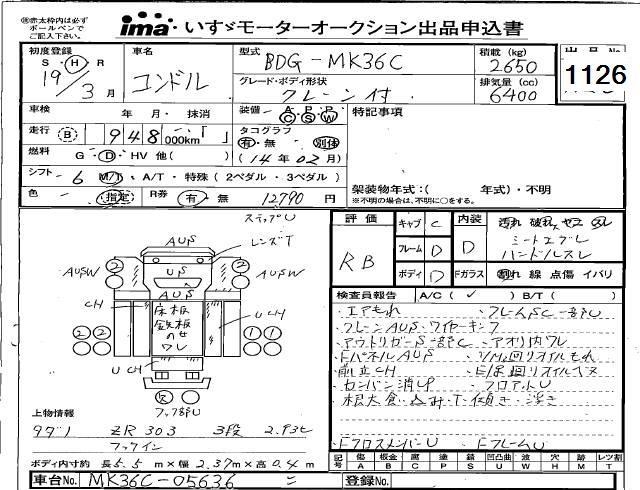 ㊟赤太枠内は必ず
ボールペンで
ご記入下さい。
ima いすゞモーターオークション出品申込書
初度登録 車名 型式 BDG-MK36C 積載 (kg) 2650 出品No.
S・H・R 19/3月 コンドル グレード・ボディ形状 クレーン付 排気量 (cc) 6400 1126
車検 年 月・抹消 装備 A C P S P W 特記事項
走行 B 948 000km タコグラフ
有・無 別体
燃料 G・D・HV 他( ) (14年02月)
シフト 6 M/T・A/T・特殊(2ペダル・3ペダル)
色 指定 R券 有・無 12790円
架装物年式:( 年式)・不明
※不明の場合は、不明に○をする。
ステップU
AUS レンズT
AUSW US AUSW
AUS
CH 床板 鉄板 のせ フレ UCH
UCH
評価 RB
キャブ C 内装 D 汚れ 破れ ヤニ スレ
フレーム D シートコゲレ
ハンドルスレ
ボディ D Fガラス 割れ 線 点傷 イバリ
検査員報告 A/C ( ✓ ) B/T ( )
・エアもれ ・フレームSC一部U
・クレーンAUS・ワイヤーキンク
・アウトリガーS一部C ・アオリ内ワレ
・FパネルAUS
・前立CH
・カンバン消しP ・フロアトU
・根太食い込み・T・傾き・浮き
・FフロスメンバーU ・FフレームU
上物情報
タダノ ZR303 3段 2.93t
フックイン
ボディ内寸約 長5.5m×幅2.37m×高0.4m
記号 傷A 板金B 腐C 塗P 錆S 凹凸曲U 波W 穴H 鉄M 汚T レツ割
車台No. MK36C-05636 登録No.